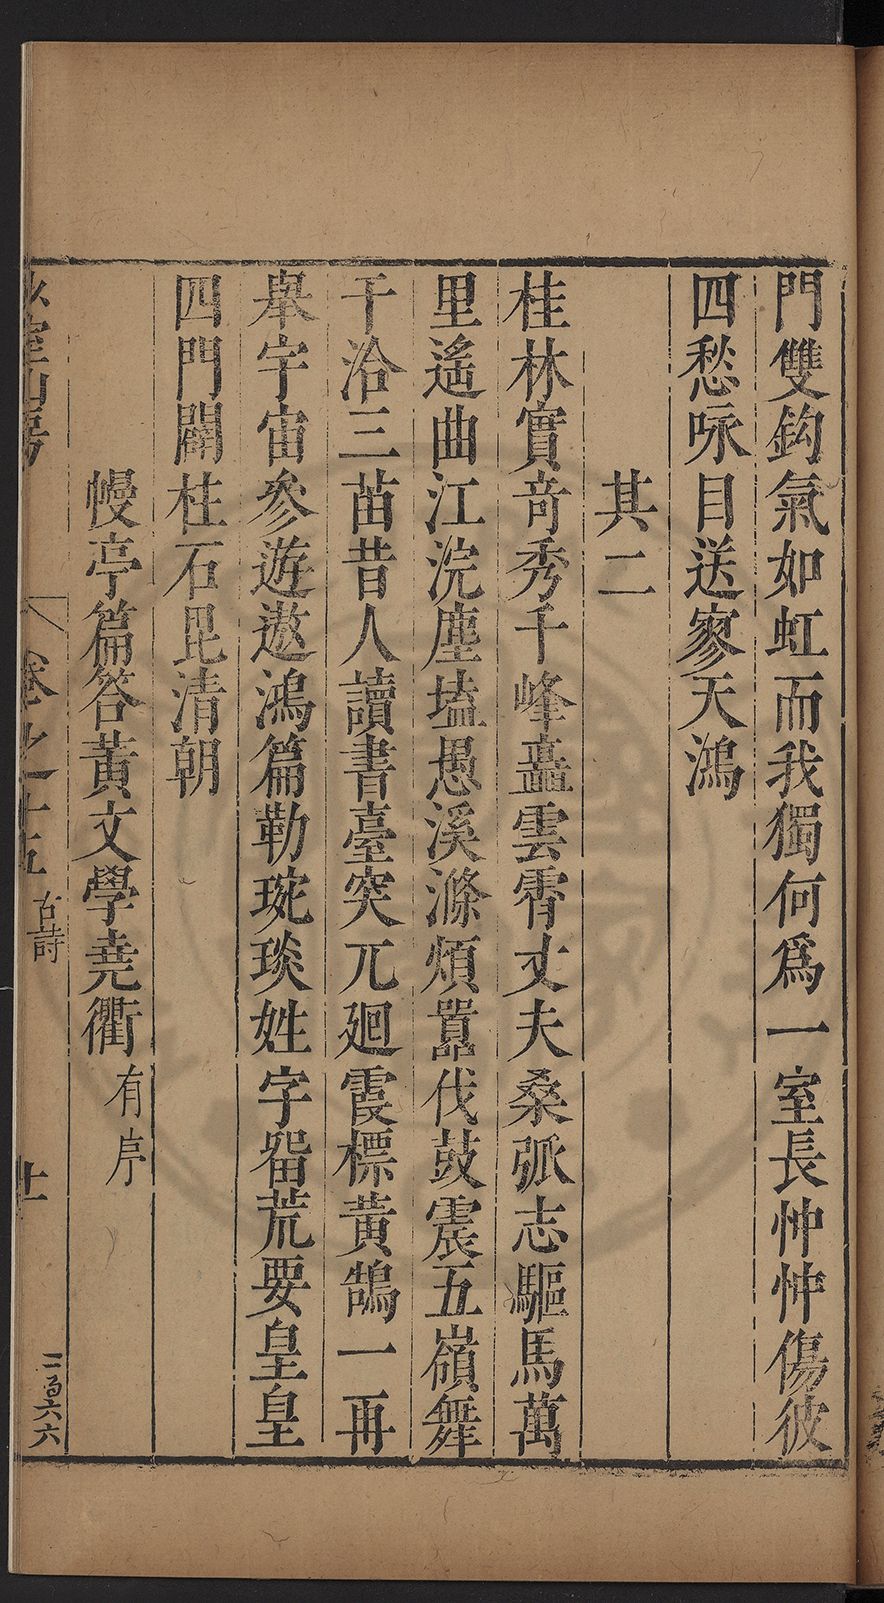 門雙鈎氣如虹而我獨何爲一室長忡忡傷彼
四愁咏目送寥天鴻
其二
桂林實奇秀千峰矗雲霄丈夫桑弧志驅馬萬
里遙曲江浣塵壒愚溪滌煩囂伐鼓震五嶺舞
干洽三苗昔人讀書臺突兀廻霞標黃鵠一再
舉宇宙參遊遨鴻篇勒琬琰姓字留荒要皇皇
四門闢柱石毘清朝
幔亭篇答黃文學堯衢 有序
山房 卷之十五 古詩 十一 二百六六